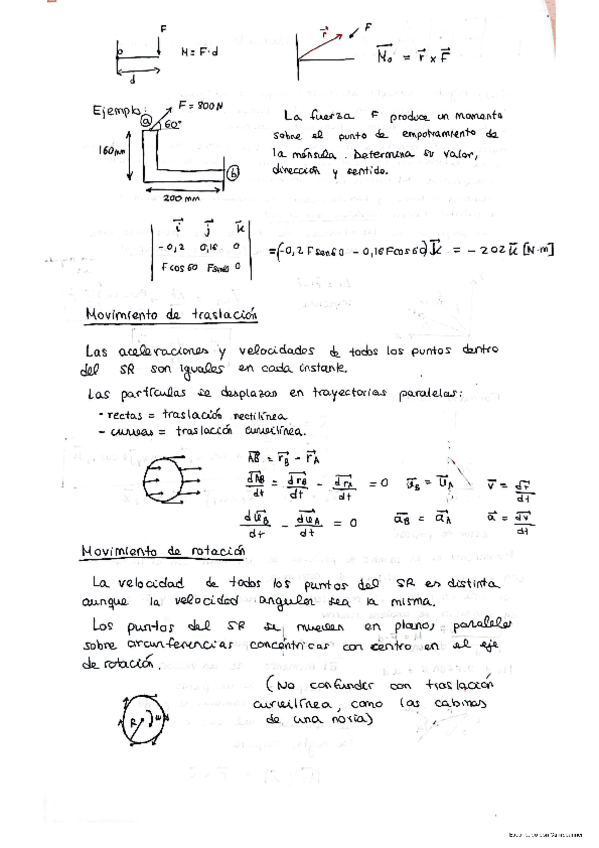 F
M = F·d
d
r F
M₀ = r x F
Ejemplo:
F = 800N
a 60°
160mm
b
200 mm
La fuerza F produce un momento
sobre el punto de empotramiento de
la ménsula. Determina su valor,
dirección y sentido.
i j k
-0,2 0,16 0
F cos 60 F sen60 0
= (-0,2 F sen 60 - 0,16 F cos 60) k = -202 k [N·m]
Movimiento de traslación
Las aceleraciones y velocidades de todos los puntos dentro
del SR son iguales en cada instante.
Las partículas se desplazan en trayectorias paralelas:
- rectas = traslación rectilínea
- curvas = traslación curvilínea.
AB = r_B - r_A
dAB/dt = dr_B/dt - dr_A/dt = 0 v_B = v_A v = dr/dt
dv_B/dt - dv_A/dt = 0 a_B = a_A a = dv/dt
Movimiento de rotación
La velocidad de todos los puntos del SR es distinta
aunque la velocidad angular sea la misma.
Los puntos del SR se mueven en planos paralelos
sobre circunferencias concéntricas con centro en el eje
de rotación.
(No confundir con traslación
curvilínea, como las cabinas
de una noria)
R ω